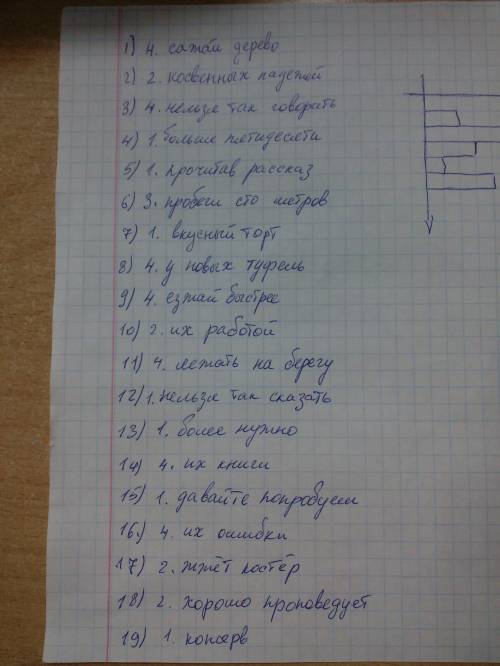 1) 4. сажай дерево
2) 2. косвенных падежей
3) 4. нельзя так говорить
4) 1. больше пятидесяти
5) 1. прочитав рассказ
6) 3. пробеги сто метров
7) 1. вкусный торт
8) 4. у новых туфель
9) 4. езжай быстрее
10) 2. их работой
11) 4. лежать на берегу
12) 1. нельзя так сказать
13) 1. более нужно
14) 4. их книги
15) 1. давайте попробуем
16.) 4. их ошибки
17) 2. жжёт костёр
18) 2. хорошо проповедует
19) 1. консерв